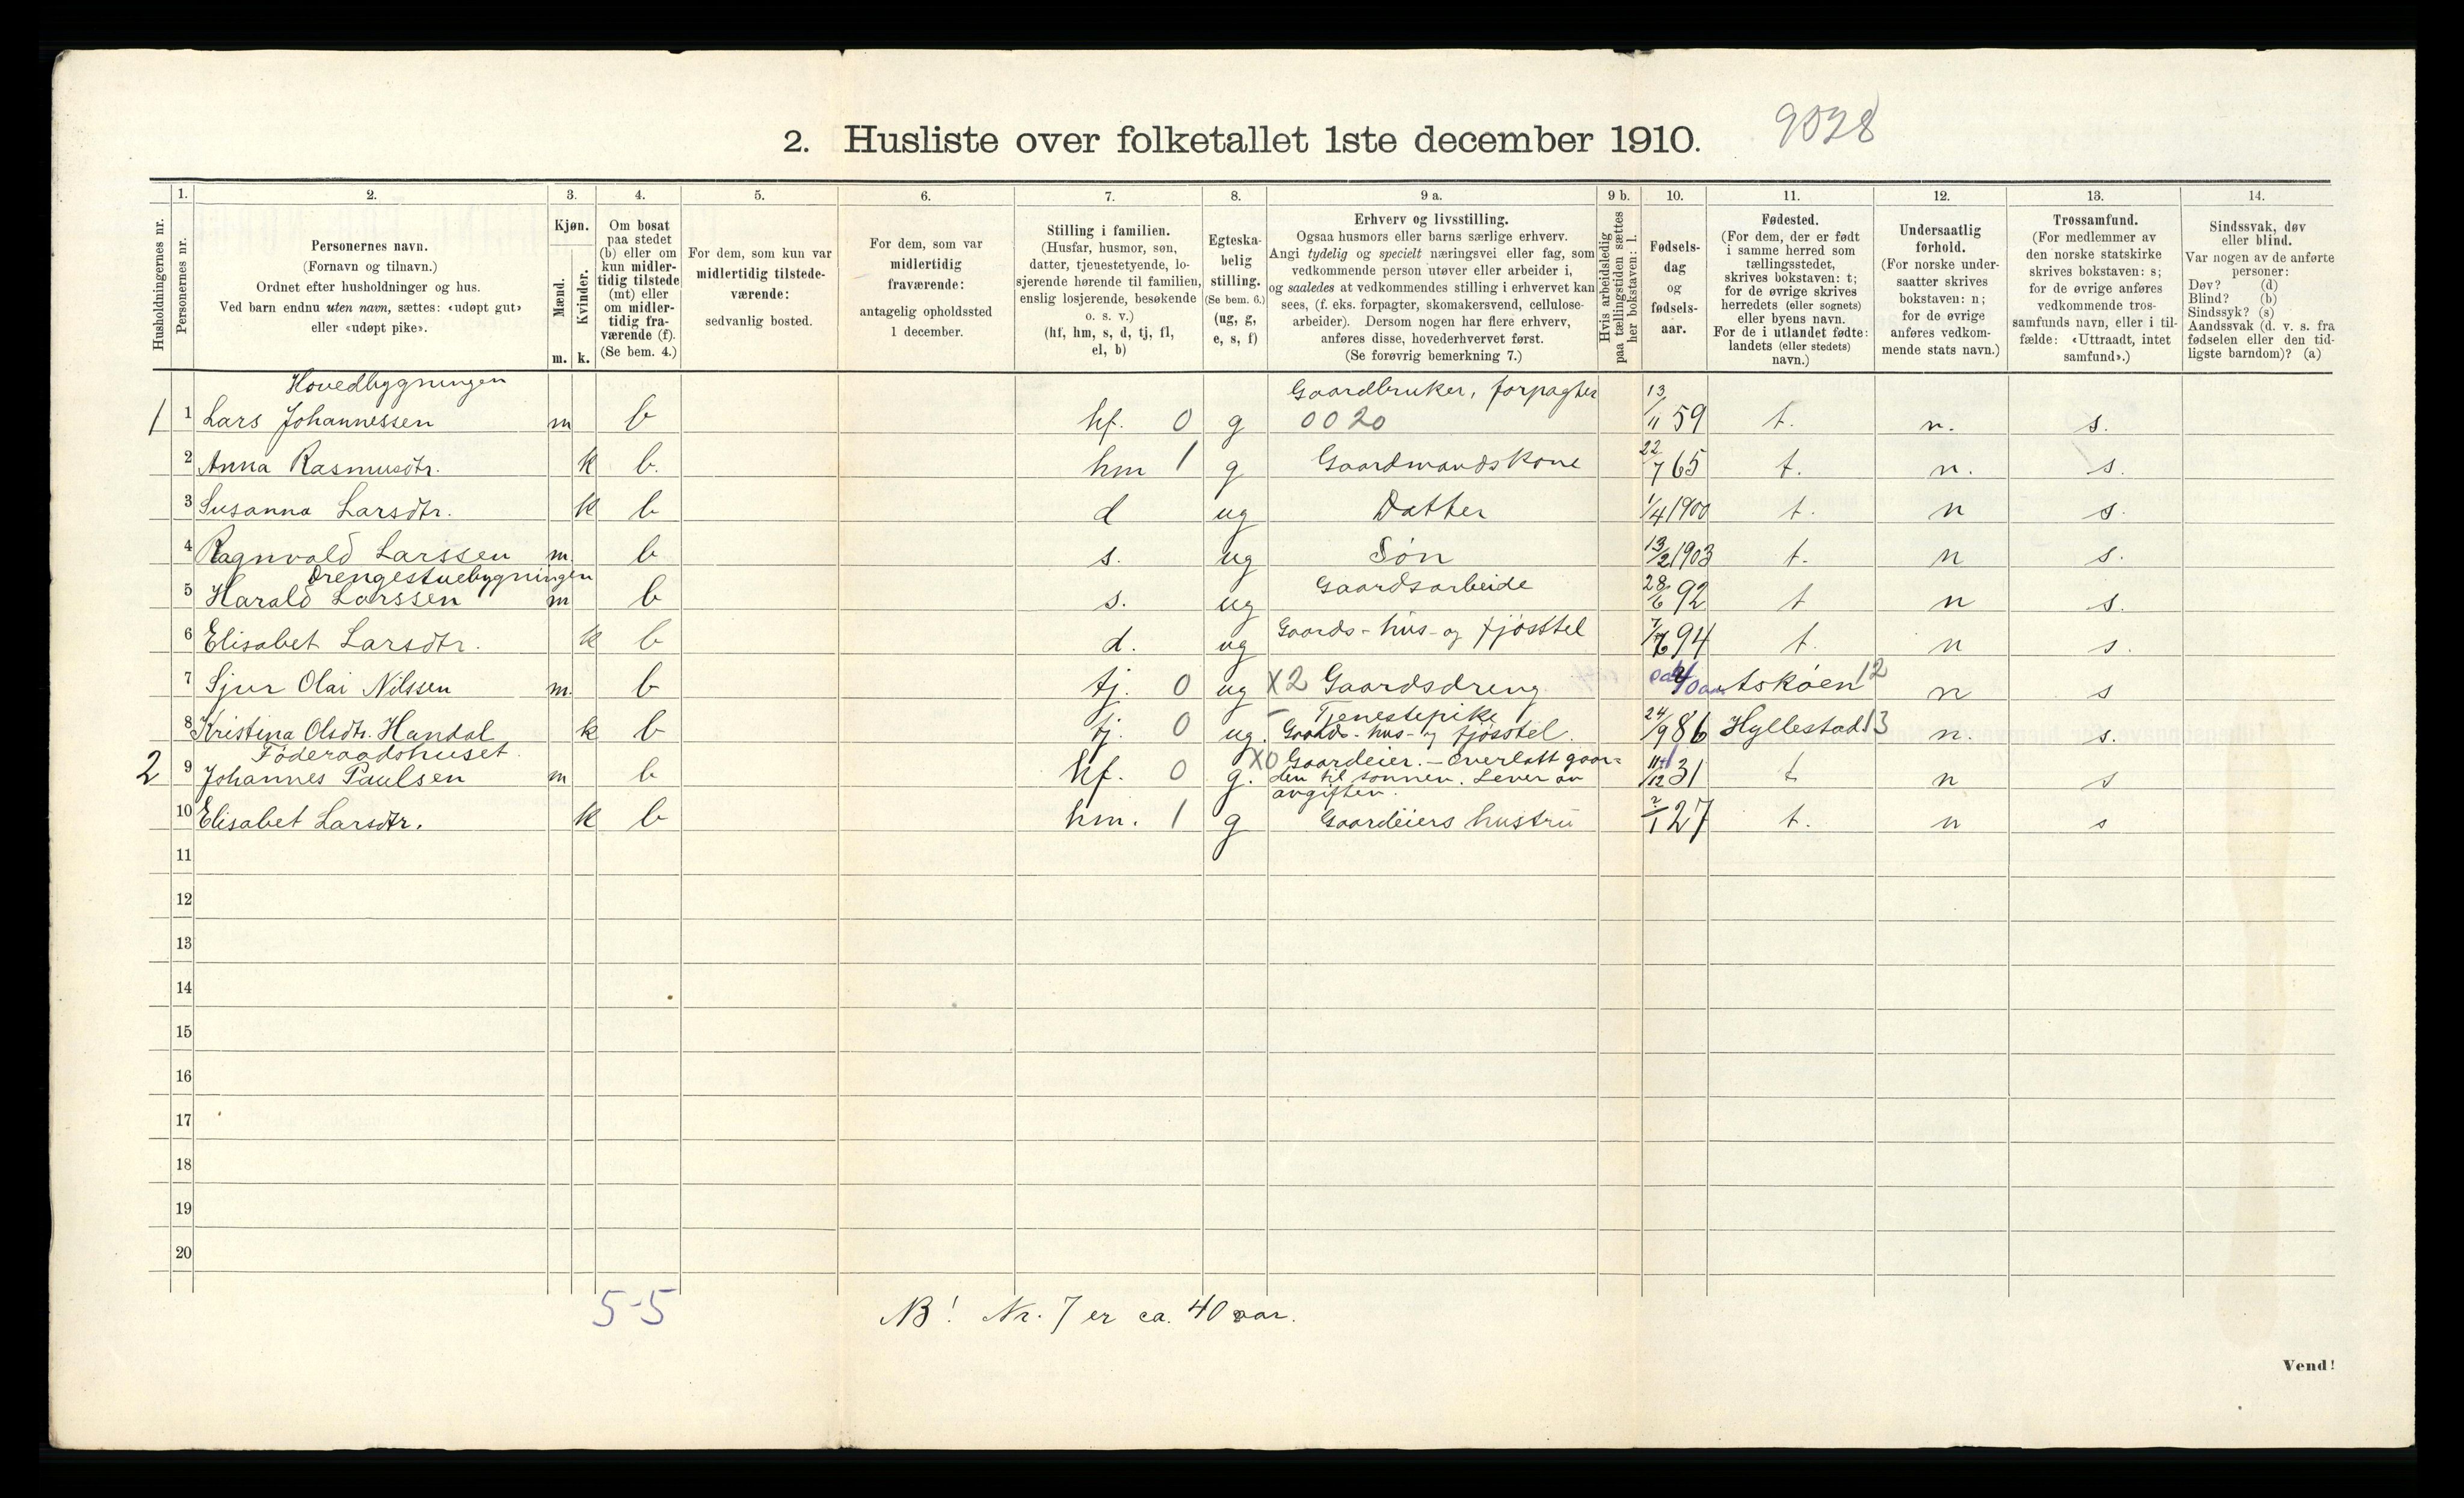 2. Husliste over folketallet 1ste december 1910. 9028
Husholdningernes nr.
1. Personernes nr.
2. Personernes navn.
(Fornavn og tilnavn.)
Ordnet efter husholdninger og hus.
Ved barn endnu uten navn, sættes: «udøpt gut»
eller «udøpt pike».
3. Kjøn.
Mænd. Kvinder.
m. k.
4. Om bosat
paa stedet
(b) eller om
kun midler-
tidig tilstede
(mt) eller
om midler-
tidig fra-
værende (f).
(Se bem. 4.)
5. For dem, som kun var
midlertidig tilstede-
værende:
sedvanlig bosted.
6. For dem, som var
midlertidig
fraværende:
antagelig opholdssted
1 december.
7. Stilling i familien.
(Husfar, husmor, søn,
datter, tjenestetyende, lo-
sjerende hørende til familien,
enslig losjerende, besøkende
o. s. v.)
(hf, hm, s, d, tj, fl,
el, b)
8. Egteska-
belig
stilling.
(Se bem. 6.)
(ug, g,
e, s, f)
9 a. Erhverv og livsstilling.
Ogsaa husmors eller barns særlige erhverv.
Angi tydelig og specielt næringsvei eller fag, som
vedkommende person utøver eller arbeider i,
og saaledes at vedkommendes stilling i erhvervet kan
sees, (f. eks. forpagter, skomakersvend, cellulose-
arbeider). Dersom nogen har flere erhverv,
anføres disse, hovederhvervet først.
(Se forøvrig bemerkning 7.)
9 b. Hvis arbeidsledig
paa tællingstiden sættes
her bokstaven: l.
10. Fødsels-
dag
og
fødsels-
aar.
11. Fødested.
(For dem, der er født
i samme herred som
tællingsstedet,
skrives bokstaven: t;
for de øvrige skrives
herredets (eller sognets)
eller byens navn.
For de i utlandet fødte:
landets (eller stedets)
navn.)
12. Undersaatlig
forhold.
(For norske under-
saatter skrives
bokstaven: n;
for de øvrige
anføres vedkom-
mende stats navn.)
13. Trossamfund.
(For medlemmer av
den norske statskirke
skrives bokstaven: s;
for de øvrige anføres
vedkommende tros-
samfunds navn, eller i til-
fælde: «Uttraadt, intet
samfund».)
14. Sindssvak, døv
eller blind.
Var nogen av de anførte
personer:
Døv? (d)
Blind? (b)
Sindssyk? (s)
Aandssvak (d. v. s. fra
fødselen eller den tid-
ligste barndom)? (a)
Hovedbygningen Gaardbruker, forpagter
1 1 Lars Johannessen m b hf. 0 g 0020 13/11 59 t. n. s.
2 Anna Rasmusdtr. k b. hm 1 g Gaardmandskone 22/7 65 t. n. s.
3 Susanna Larsdtr. k b d ug Datter 1/4 1900 t. n s.
4 Ragnvald Larssen m. b s. ug Søn 13/2 1903 t. n s.
Drengestuebygningen
5 Harald Larssen m b s. ug Gaardsarbeide 28/6 92 t n s.
6 Elisabet Larsdtr. k b d. ug Gaards-hus-og fjøsstel 94 t. n s.
7 Sjur Olai Nilssen m. b tj. 0 ug X2 Gaardsdreng Askøen 12 n s
Tjenestepike
8 Kristina Olsdtr. Handal k b tj. 0 ug. Gaards-hus-og fjøsstel. 24/9 86 Hyllestad 13 n. s.
Føderaadshuset.
2 9 Johannes Paulsen m b hf. 0 g. X0 Gaardeier. - Overlatt gaar-
den til sønnen. Lever av
avgiften. 11/12 31 t n s
10 Elisabet Larsdtr. k b hm. 1 g Gaardeiers hustru 2/1 27 t. n s
11
12
13
14
15
16
17
18
19
20
5-5 NB! Nr. 7 er ca. 40 aar.
Vend!